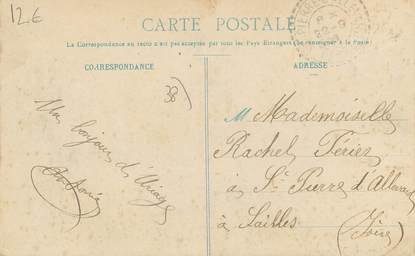 12€
CARTE POSTALE
La Correspondance au recto n'est pas acceptée par tous les Pays Étrangers (Se renseigner à la Poste)
CORRESPONDANCE
ADRESSE
38
Un bonjour d'Uriage
M Mademoiselle
Rachel Périer
à St Pierre d'Allevard
à
(Isère)